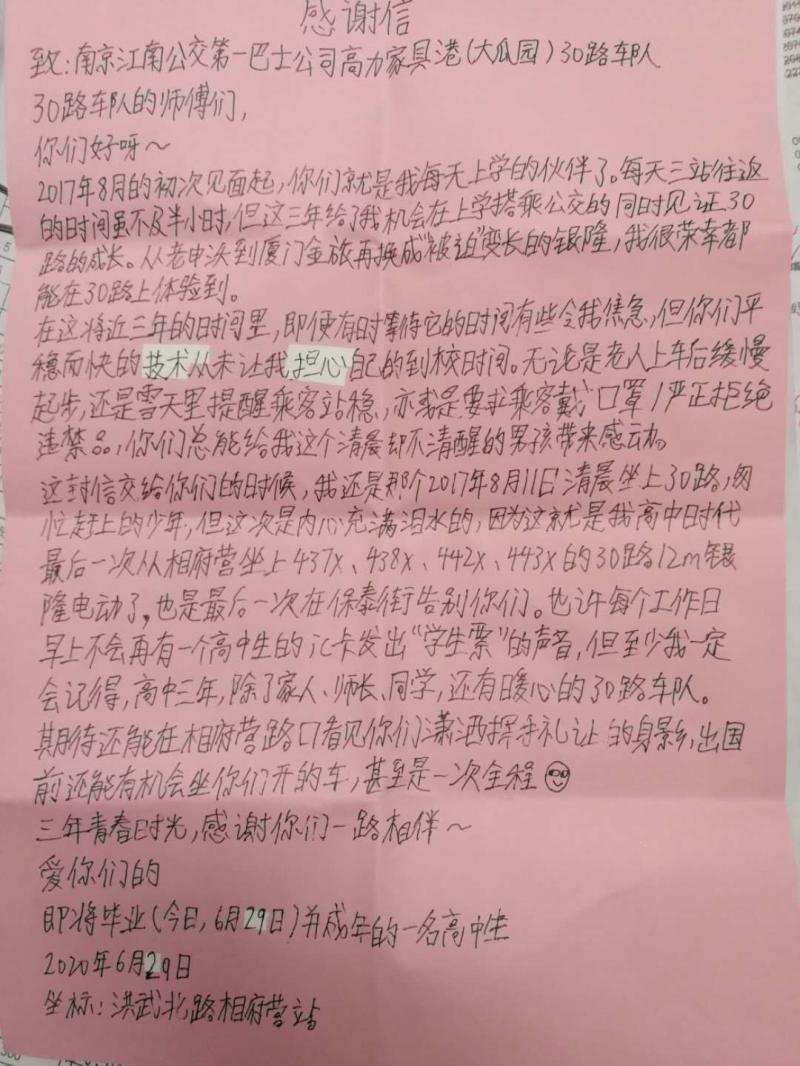 感谢信
致：南京江南公交第一巴士公司高力家具港（大瓜园）30路车队
30路车队的师傅们，
你们好呀～
2017年8月的初次见面起，你们就是我每天上学的伙伴了。每天三站往返
的时间虽不及半小时，但这三年给了我机会在上学搭乘公交的同时见证30
路的成长。从老申沃到厦门金旅再换成“被迫”变长的银隆，我很荣幸都
能在30路上体验到。
在这将近三年的时间里，即便有时等待它的时间有些令我焦急，但你们平
稳而快的技术从未让我担心自己的到校时间。无论是老人上车后缓慢
起步，还是雪天里提醒乘客站稳，亦或是要求乘客戴口罩/严正拒绝
违禁品，你们总能给我这个清晨却不清醒的男孩带来感动。
这封信交给你们的时候，我还是那个2017年8月11日清晨坐上30路，匆
忙赶上的少年，但这次是内心充满泪水的，因为这就是我高中时代
最后一次从相府营坐上437X、438X、442X、443X的30路12m银
隆电动了，也是最后一次在保泰街告别你们。也许每个工作日
早上不会再有一个高中生的ic卡发出“学生票”的声音，但至少我一定
会记得，高中三年，除了家人、师长、同学，还有暖心的30路车队。
期待还能在相府营路口看见你们潇洒挥手礼让的身影，出国
前还能有机会坐你们开的车，甚至是一次全程😎
三年青春时光，感谢你们一路相伴～
爱你们的
即将毕业（今日，6月29日）并成年的一名高中生
2020年6月29日
坐标：洪武北路相府营站